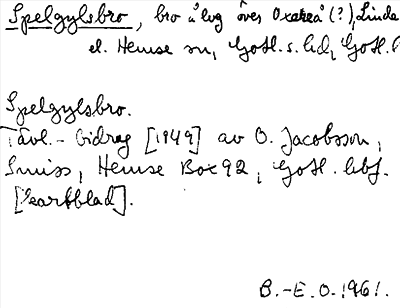 Spelgylsbro, bro å lvg över Oxarå (?), Linde
el. Hemse sn, Gotl. s. hd, Gotl. l
Spelgylsbro.
Tävl.-bidrag [1949] av O. Jacobsson,
Smiss, Hemse Box 92, Gotl. hbf.
B.-E. O. 1961.